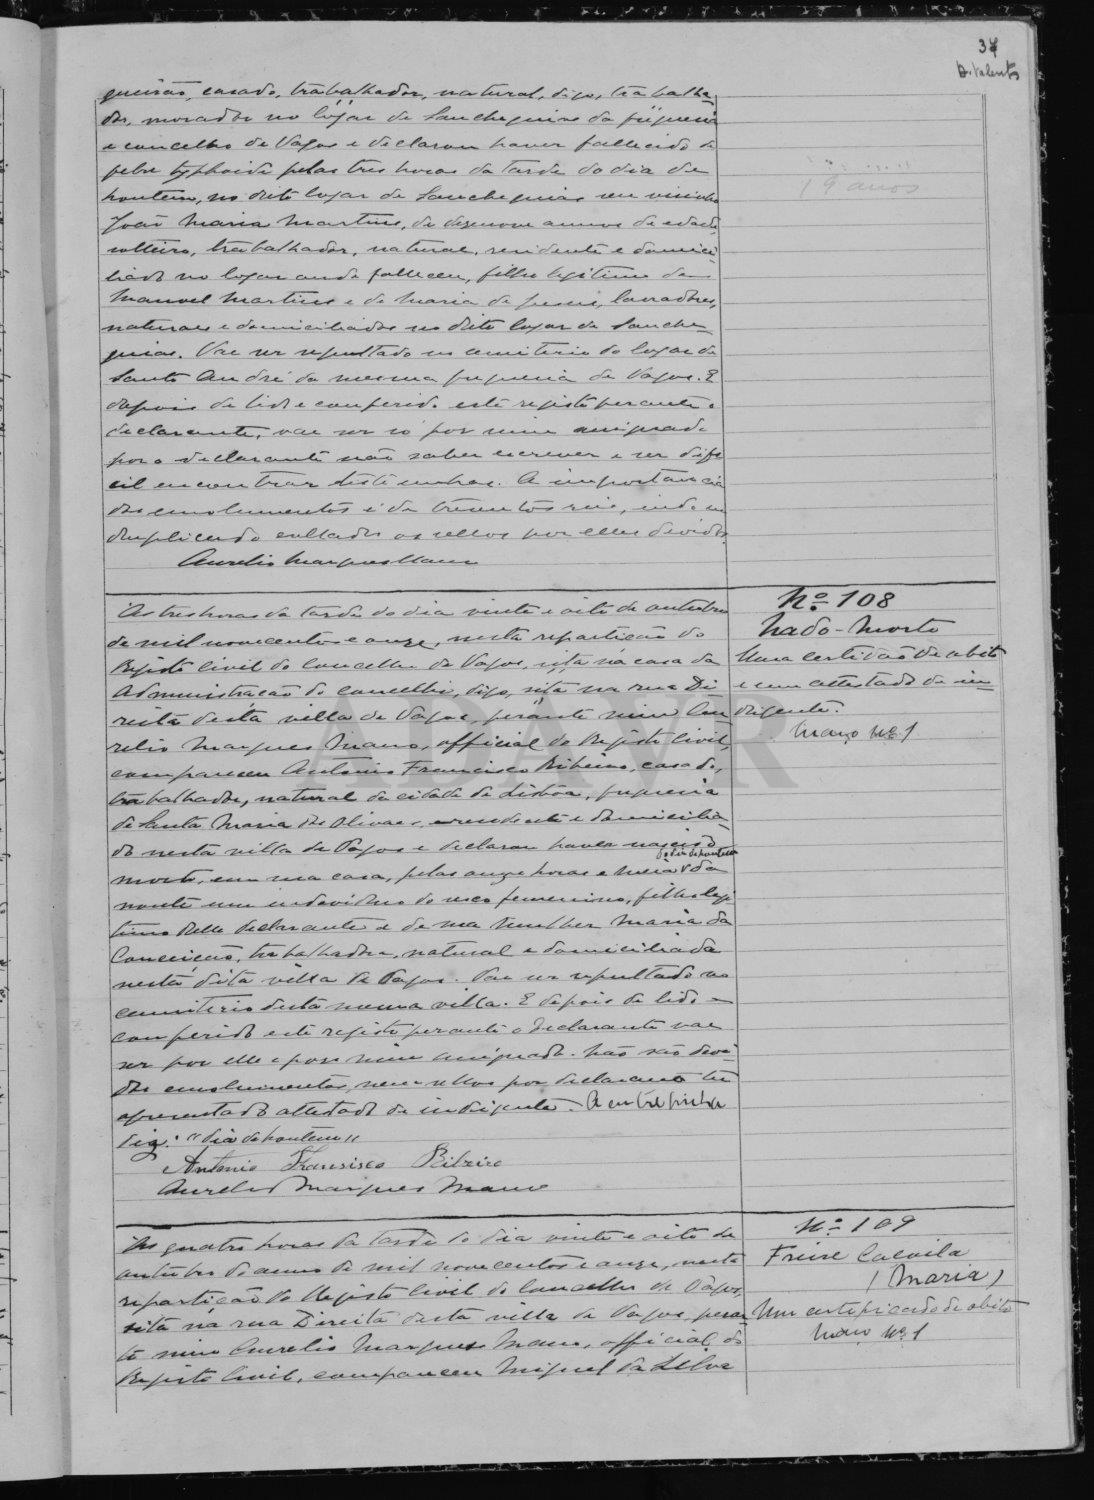 37
A. Valente
gueirão, casado, trabalhador, natural, digo, trabalha-
dor, morador no lugar de Sanchequias da freguesia
e concelho de Vagos e declarou haver fallecido de
febre typhoide pelas tres horas da tarde do dia de
hontem, no dito lugar de Sanchequias seu visinho
João Maria Martins, de desenove annos de edade,
solteiro, trabalhador, natural, residente e domici-
liado no logar onde falleceu, filho legitimo de
Manoel Martins e de Maria de Jesus, lavradores,
naturaes e domiciliados no dito logar de Sanche-
quias. Vae ser sepultado no cemiterio do logar de
Santo André da mesma freguesia de Vagos. E
depois de lido e conferido este registo perante o
declarante, vae ser só por mim assignado
por o declarante não saber escrever e ser difi-
cil encontrar testemunhas. A importancia
dos emolumentos é de trezentos reis, indo no
duplicado collados os sellos por elles devidos.
Aurelio Marques Mano
19 anos
As tres horas da tarde do dia vinte e oito de outubro
de mil novecentos e onze, nesta repartição do
Registo Civil do Concelho de Vagos, sita na casa da
Administração do concelho, digo, sita na rua Di-
reita desta villa de Vagos, perante mim Au-
relio Marques Mano, official do Registo Civil,
compareceu Antonio Francisco Ribeiro, casado,
trabalhador, natural da cidade de Lisboa, freguesia
de Santa Maria dos Olivaes, e residente e domicilia-
do nesta villa de Vagos e declarou haver nascido
do dia de hontem
morto, em sua casa, pelas onze horas e meia da
noute um individuo do sexo femenino, filho legi-
timo delle declarante e de sua mulher Maria da
Conceição, trabalhadora, natural e domiciliada
nesta dita villa de Vagos. Vae ser sepultado no
cemiterio desta mesma villa. E depois de lido e
conferido este registo perante o declarante vae
ser por elle e por mim assignado. Não são devi-
dos emolumentos, nem sellos por declarante ter
apresentado attestado de indigente. A entrelinha
diz: "dia de hontem"
Antonio Francisco Ribeiro
Aurelio Marques Mano
Nº 108
Nado-Morto
Uma certidão de obito
e um attestado de in-
digente.
Maço nº 1
As quatro horas da tarde do dia vinte e oito de
outubro do anno de mil novecentos e onze, nesta
repartição do Registo Civil do Concelho de Vagos,
sita na rua Direita desta villa de Vagos, peran-
te mim Aurelio Marques Mano, official do
Registo Civil, compareceu Miguel da Silva
Nº 109
Freire Calvila
(Maria)
Um certificado de obito
Maço nº 1
ADAVR